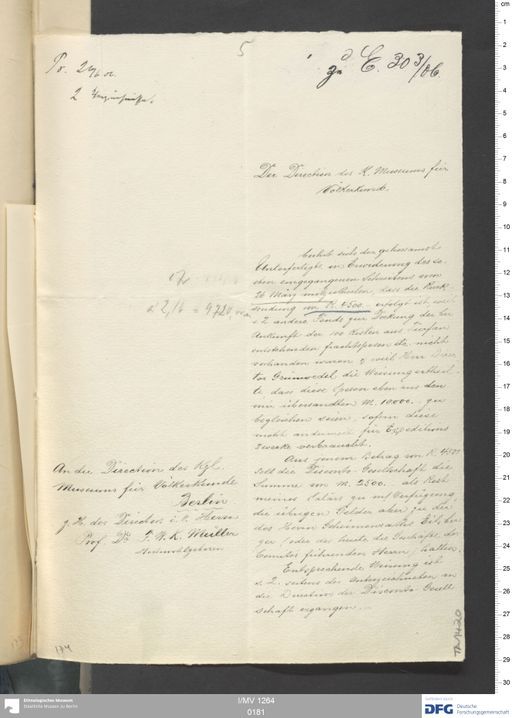 5
Pr. 2
2
zu E. 30 3/06
Der Direction des K. Museums für
Völkerkunde
beehrt sich der gehorsamst
Unterfertigte in Erwiderung des so-
eben eingegangenen Schreibens vom
26 März mitzutheilen, dass die Rück-
sendung von R. 4500 erfolgt ist, weil
s. Z. andere Fonds zur Deckung der bei
Ankunft der 100 Kisten aus Turfan
entstehenden Frachtspesen etc. nicht
vorhanden waren & weil Herr Doc-
tor Grünwedel die Weisung ertheil-
te dass diese Spesen eben aus den
mir übersandten M. 10000.- zu
begleichen seien, sofern diese
nicht anderweit für Expeditions
zwecke verbraucht.
Aus jenem Betrag von R 4500
soll die Disconto-Gesellschaft die
Summe von M. 2500.- als Rest
meines Salärs zu m/ Verfügung,
die übrigen Gelder aber zu der
des Herrn Geheimenrathes
(oder des heute die Geschäfte des
Comités führenden Herrn) halten.
Entsprechende Weisung ist
s. Z. seitens des Unterzeichneten an
die Direction der Disconto Gesell-
schaft ergangen.
à 2,16 = 9720,
An die Direction des Kgl.
Museums für Völkerkunde
Berlin
z. H. des Direktors i. V. Herrn
Prof. Dr. F. W. K. Müller
Hochwohlgeboren
174
TA 1420
cm
1
2
3
4
5
6
7
8
9
10
11
12
13
14
15
16
17
18
19
20
21
22
23
24
25
26
27
28
29
30
Ethnologisches Museum
Staatliche Museen zu Berlin
I/MV 1264
0181
GEFÖRDERT VON
DFG Deutsche
Forschungsgemeinschaft